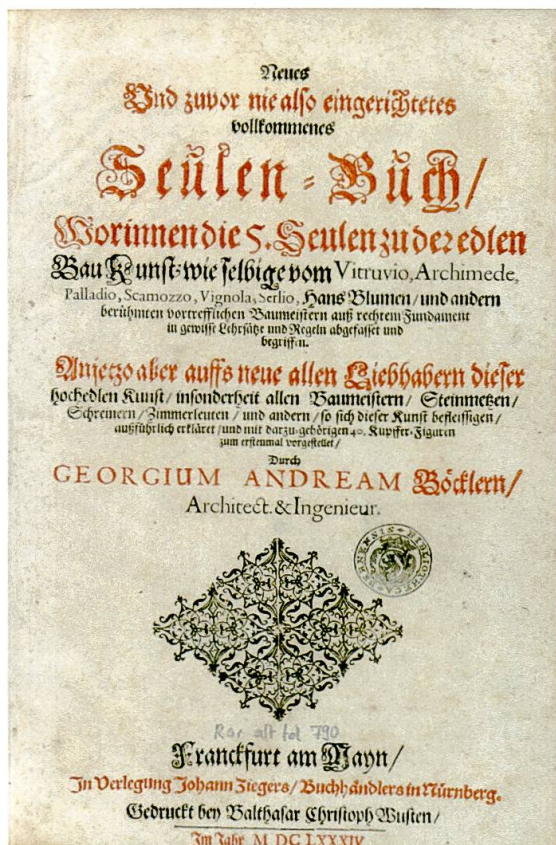 Neues
Und zuvor nie also eingerichtetes
vollkommenes
Seulen-Buch/
Worinnen die 5. Seulen zu der edlen
Bau Kunst: wie selbige vom Vitruvio, Archimede,
Palladio, Scamozzo, Vignola, Serlio, Hans Blumen/ und andern
berühmten vortrefflichen Baumeistern auß rechtem Fundament
in gewisse Lehrsätze und Regeln abgefasset und
begriffen.
Anjetzo aber auffs neue allen Liebhabern dieser
hochedlen Kunst/ insonderheit allen Baumeistern/ Steinmetzen/
Schreinern/ Zimmerleuten/ und andern/ so sich dieser Kunst befleissigen/
außführlich erkläret/ und mit darzu-gehörigen 40. Kupffer-Figuren
zum erstenmal vorgestellet/
Durch
GEORGIUM ANDREAM Böcklern/
Architect. & Ingenieur.
BIBLIOTHECA
Rar alt fol 790
Franckfurt am Mayn/
In Verlegung Johann Ziegers/ Buchhändlers in Nürnberg.
Gedruckt bey Balthasar Christoph Wusten/
Im Jahr M DC LXXXIV